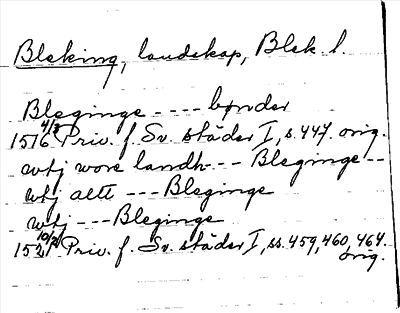 Bleking, landskap, Blek. l.
Bleginge ---- bønder
1516 4/3 Priv. f. Sv. städer I, s. 447. orig.
uthj wore landh --- Bleginge --
uthj alle --- Bleginge
uthj --- Bleginge
1521 10/2 Priv. f. Sv. städer I, ss. 459, 460, 464.
orig.